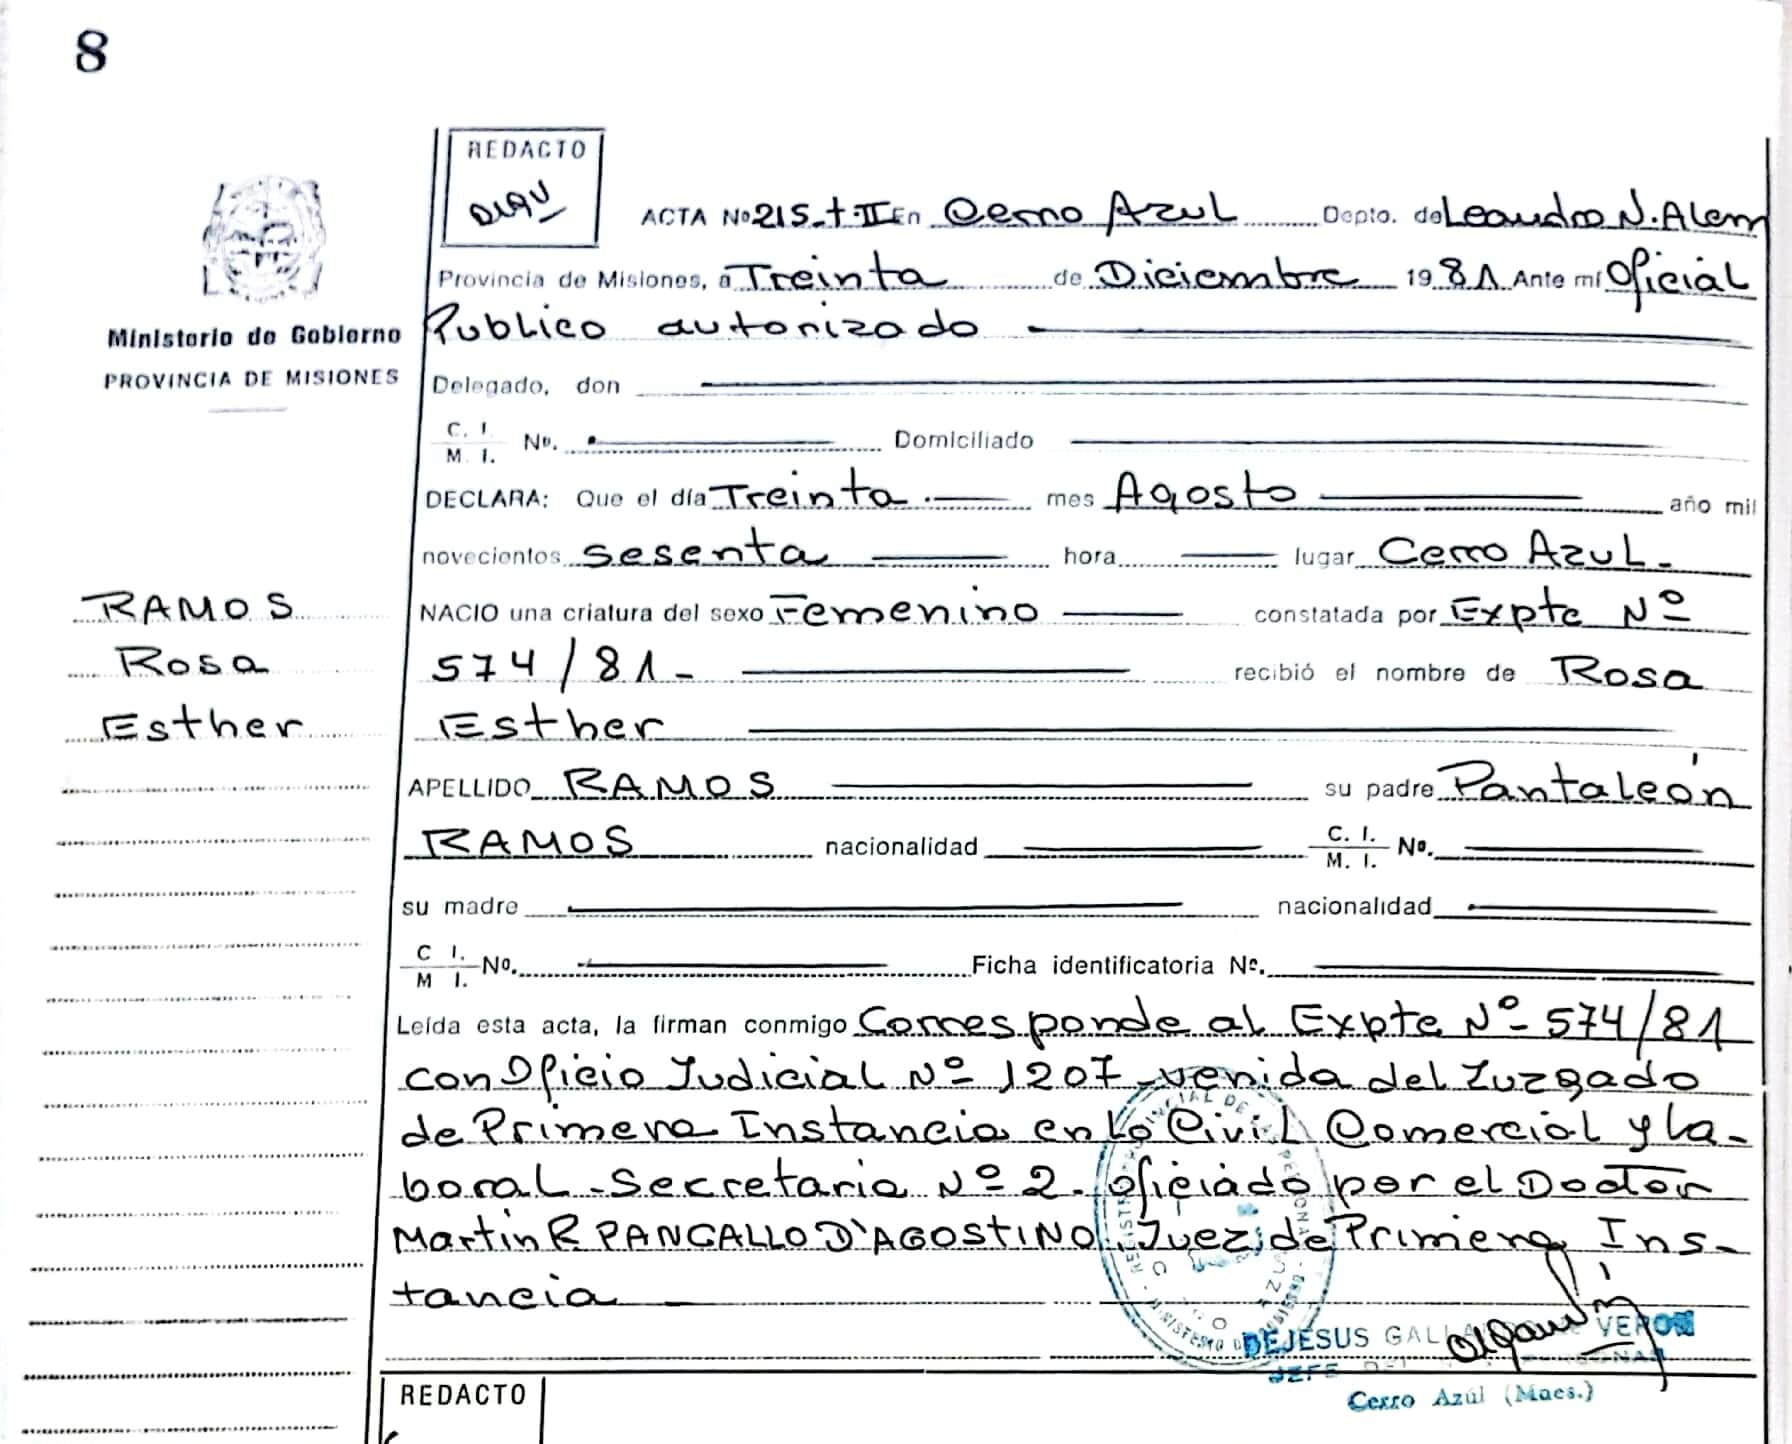 8
REDACTO
ACTA Nº 215 t. II En Cerro Azul Depto. de Leandro N. Alem
Provincia de Misiones, a Treinta de Diciembre 1981 Ante mí Oficial
Publico autorizado
Ministerio de Gobierno
PROVINCIA DE MISIONES
Delegado, don
C. I.
M. I. Nº. Domiciliado
DECLARA: Que el día Treinta mes Agosto año mil
novecientos sesenta hora lugar Cerro Azul.
RAMOS
Rosa
Esther
NACIO una criatura del sexo Femenino constatada por Expte Nº
574/81- recibió el nombre de Rosa
Esther
APELLIDO RAMOS su padre Pantaleón
RAMOS nacionalidad C. I.
M. I. Nº.
su madre nacionalidad
C I.
M I. Nº. Ficha identificatoria Nº.
Leída esta acta, la firman conmigo Corresponde al Expte Nº 574/81
con Oficio Judicial Nº 1207-venida del Juzgado
de Primera Instancia en lo Civil Comercial y la-
boral-Secretaria Nº 2. oficiado por el Doctor
Martin R PANGALLO D'AGOSTINO Juez de Primera Ins-
tancia
DEJESUS VERON
JEFE
Cerro Azúl (Mnes.)
REDACTO